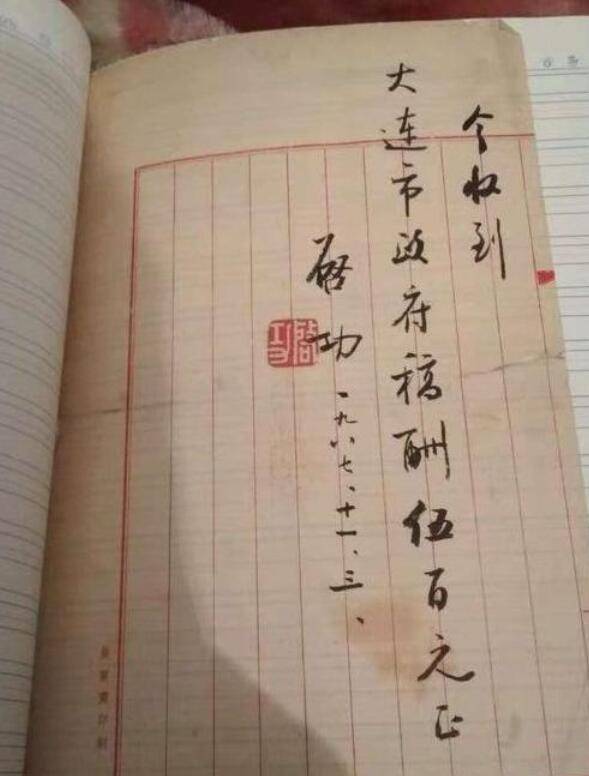 今收到
大连市政府稿酬伍百元正
启功
一九八七、十一、三、
启功